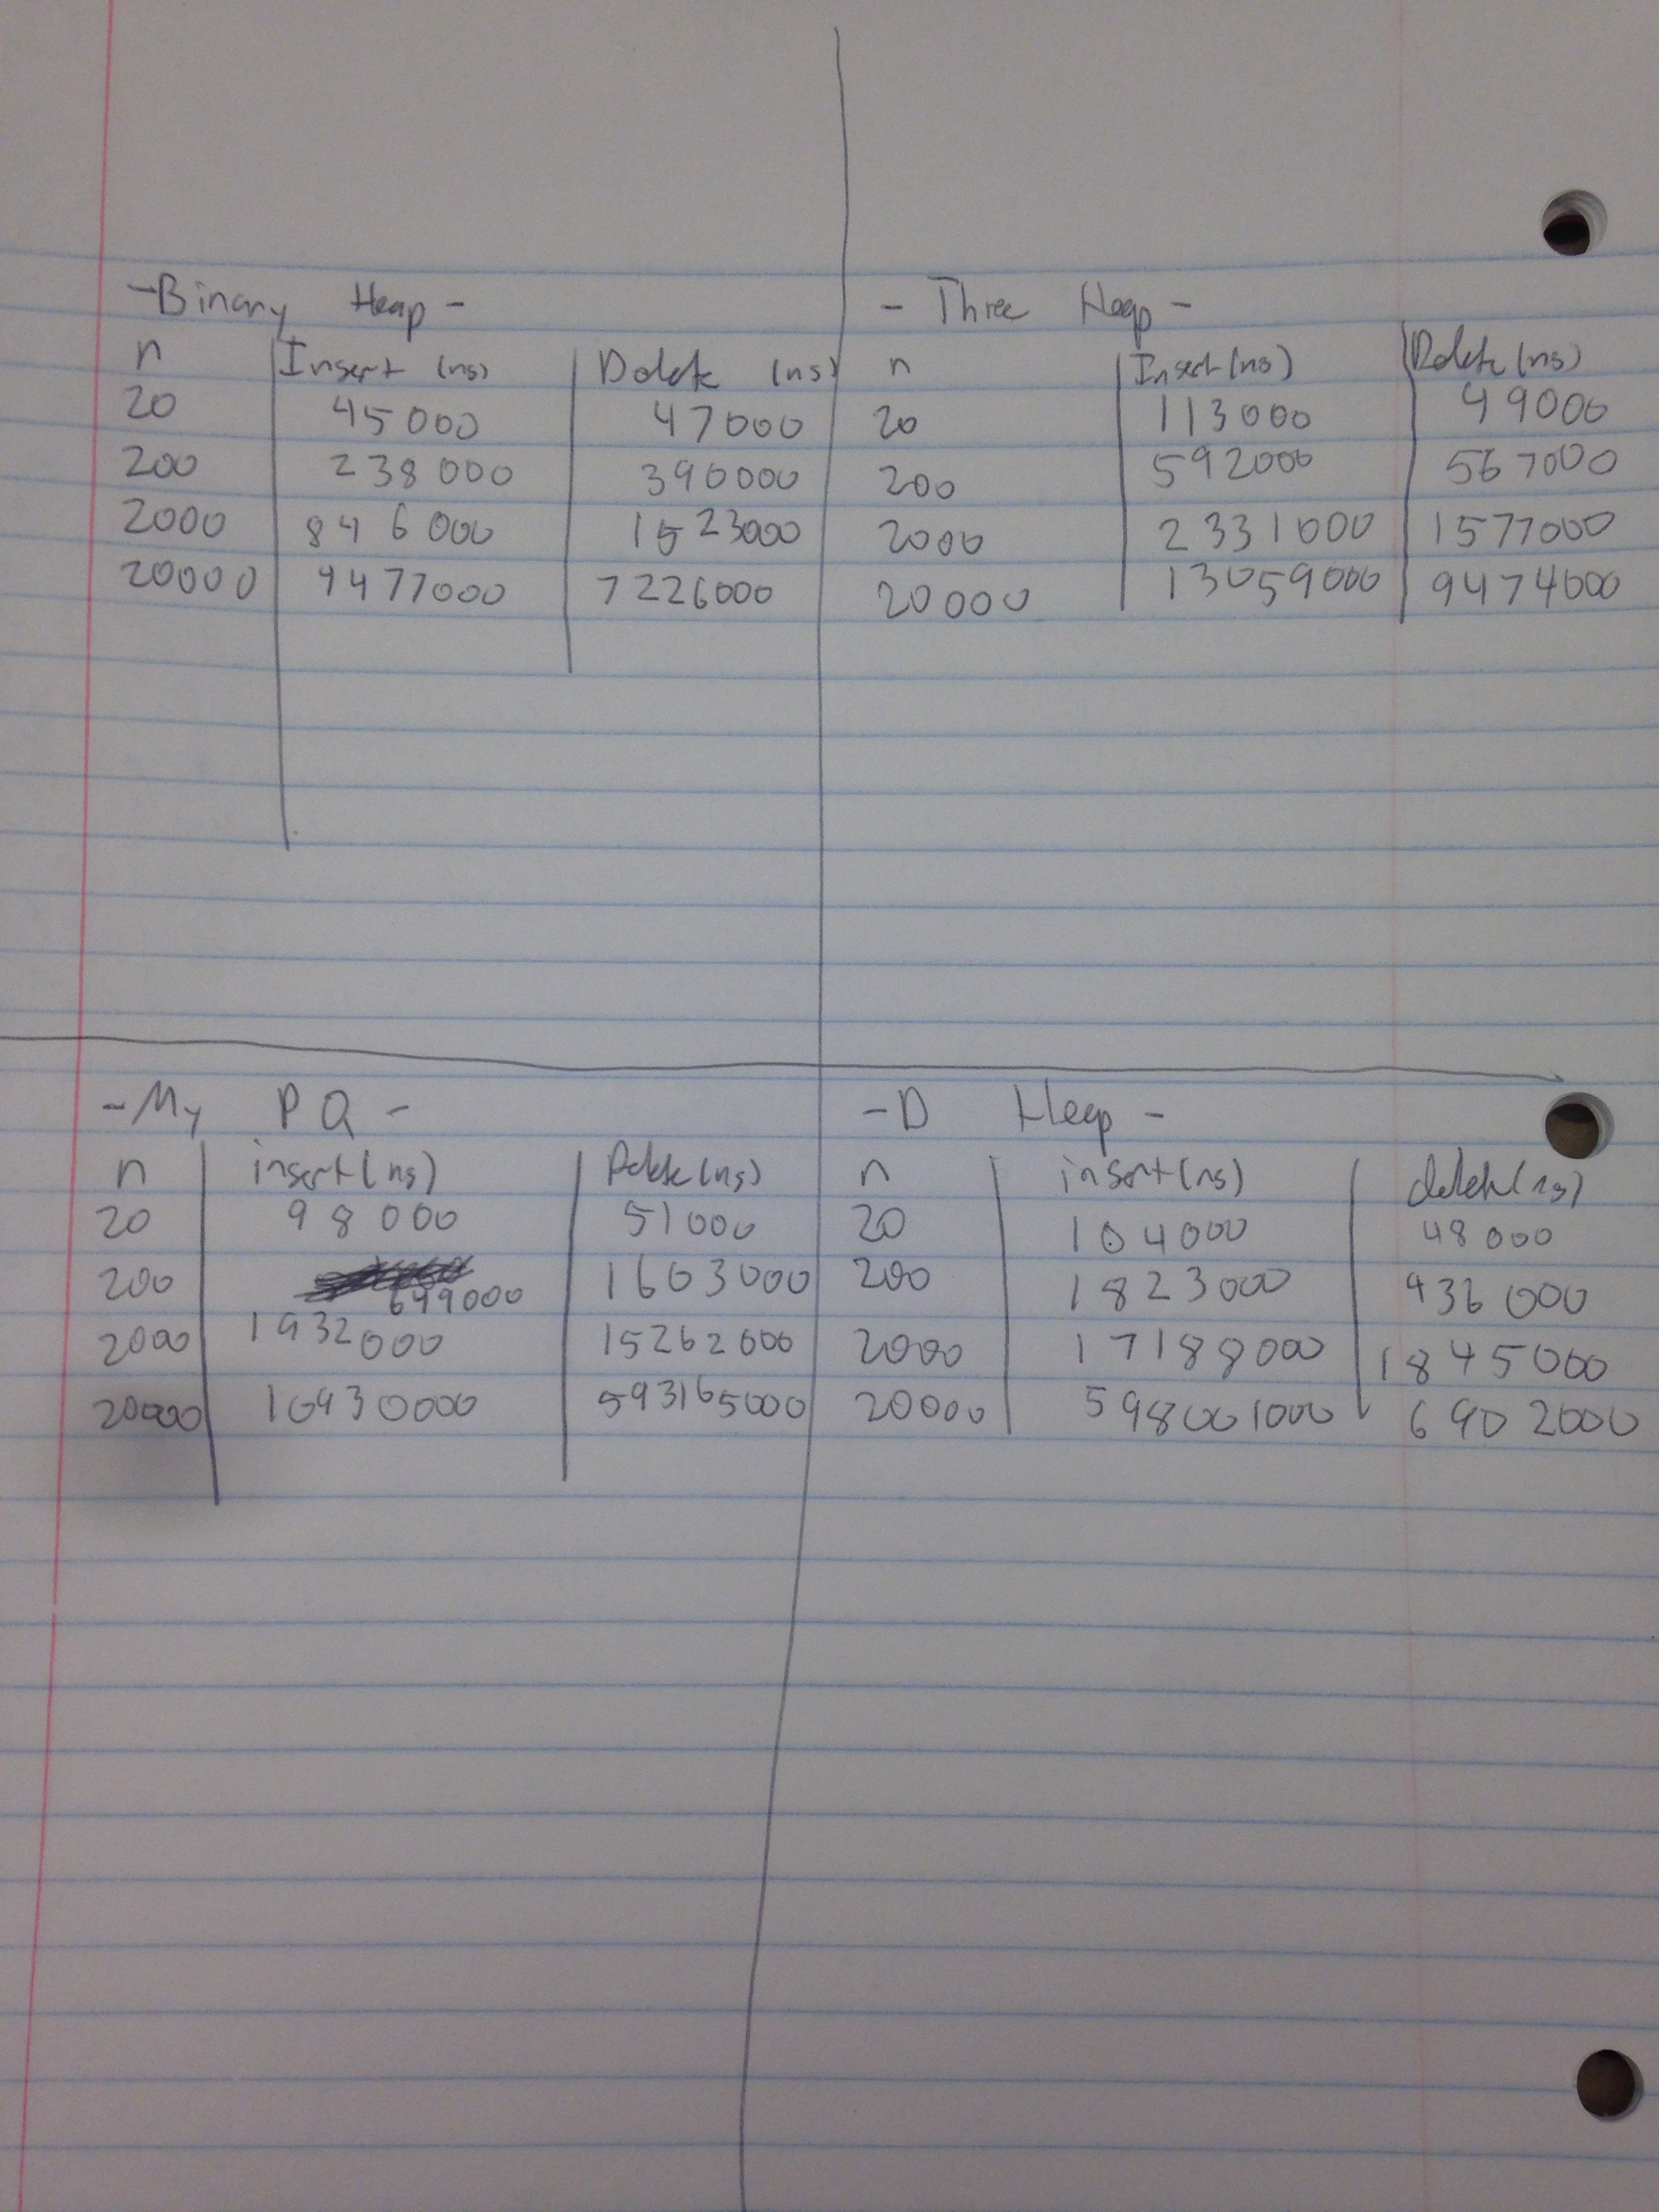 -Binary Heap-
n Insert (ns) Delete (ns)
20 45000 47000
200 238000 390000
2000 846000 1523000
20000 9477000 7226000
- Three Heap -
n Insert (ns) Delete (ns)
20 113000 49000
200 592000 567000
2000 2331000 1577000
20000 13059000 9474000
-My PQ-
n insert (ns) Delete (ns)
20 98000 51000
200 649000 1603000
2000 1932000 15262000
20000 10930000 593165000
-D Heap-
n insert (ns) delete (ns)
20 104000 48000
200 1823000 436000
2000 17188000 1845000
20000 598001000 6902000